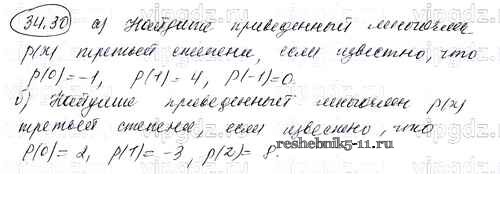 34.30 а) Найдите приведенный многочлен
p(x) третьей степени, если известно, что
p(0)=-1, p(1)=4, p(-1)=0.
б) Найдите приведенный многочлен p(x)
третьей степени, если известно, что
p(0)=2, p(1)=-3, p(2)=8.
reshebnik5-11.ru
vipgdz.ru